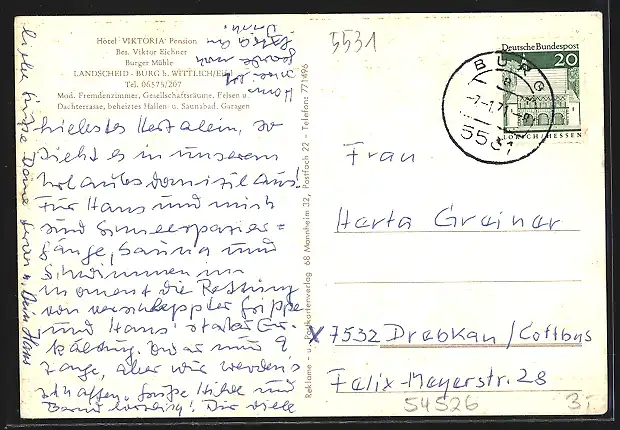 Hotel 'VIKTORIA' Pension
Bes. Viktor Eichner
Burger Mühle
LANDSCHEID - BURG b. WITTLICH/EIFEL
Tel. 06575/207
Mod. Fremdenzimmer, Gesellschaftsräume, Felsen u.
Dachterrasse, beheiztes Hallen- u. Saunabad. Garagen
Liebstes Hertalein, so
sieht es in unserem
Urlaubsdomizil aus!
Für Hans und mich
sind
gänge, Sauna und
Schwimmen im
Moment die Rettung
von verschleppter Grippe
und Hans' starker Er-
kältung. Zwar nur 9
Tage, aber wir werden's
schaffen. Grüße Hilde und
Bernd! Dir viele
liebe Grüße Deine u. Dein Hans
Reklame- u. Postkartenverlag 68 Mannheim 32, Postfach 22 - Telefon: 771496
5531
Deutsche Bundespost
20
LORSCH/HESSEN
BURG
5531
Frau
Herta Greiner
X 7532 Drebkau/Cottbus
Felix-Meyerstr. 28
54526